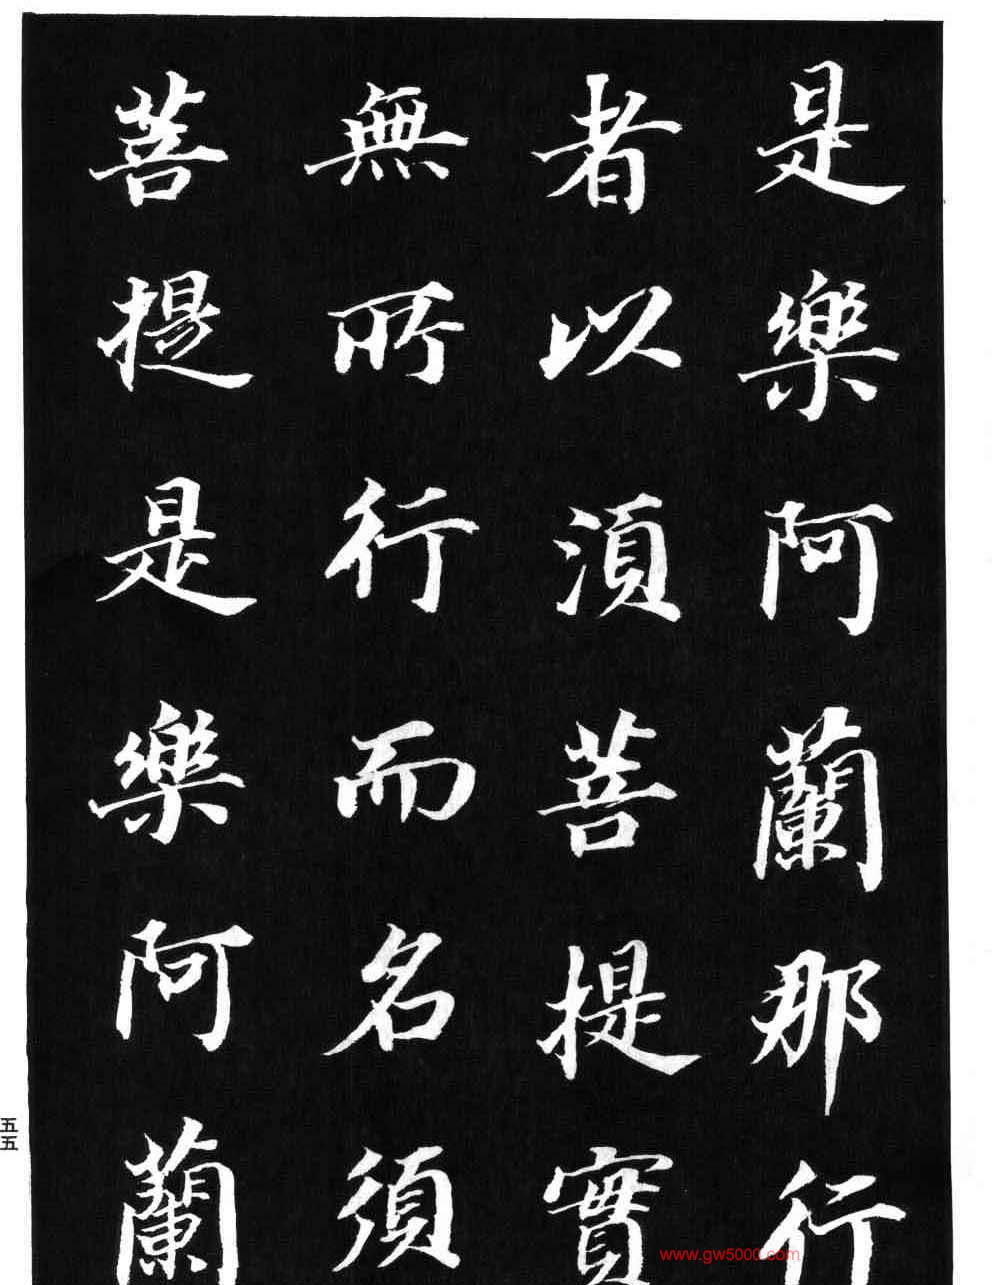 是樂阿蘭那行
者以湏菩提實
無所行而名須
菩提是樂阿蘭
五五
www.gw5000.com